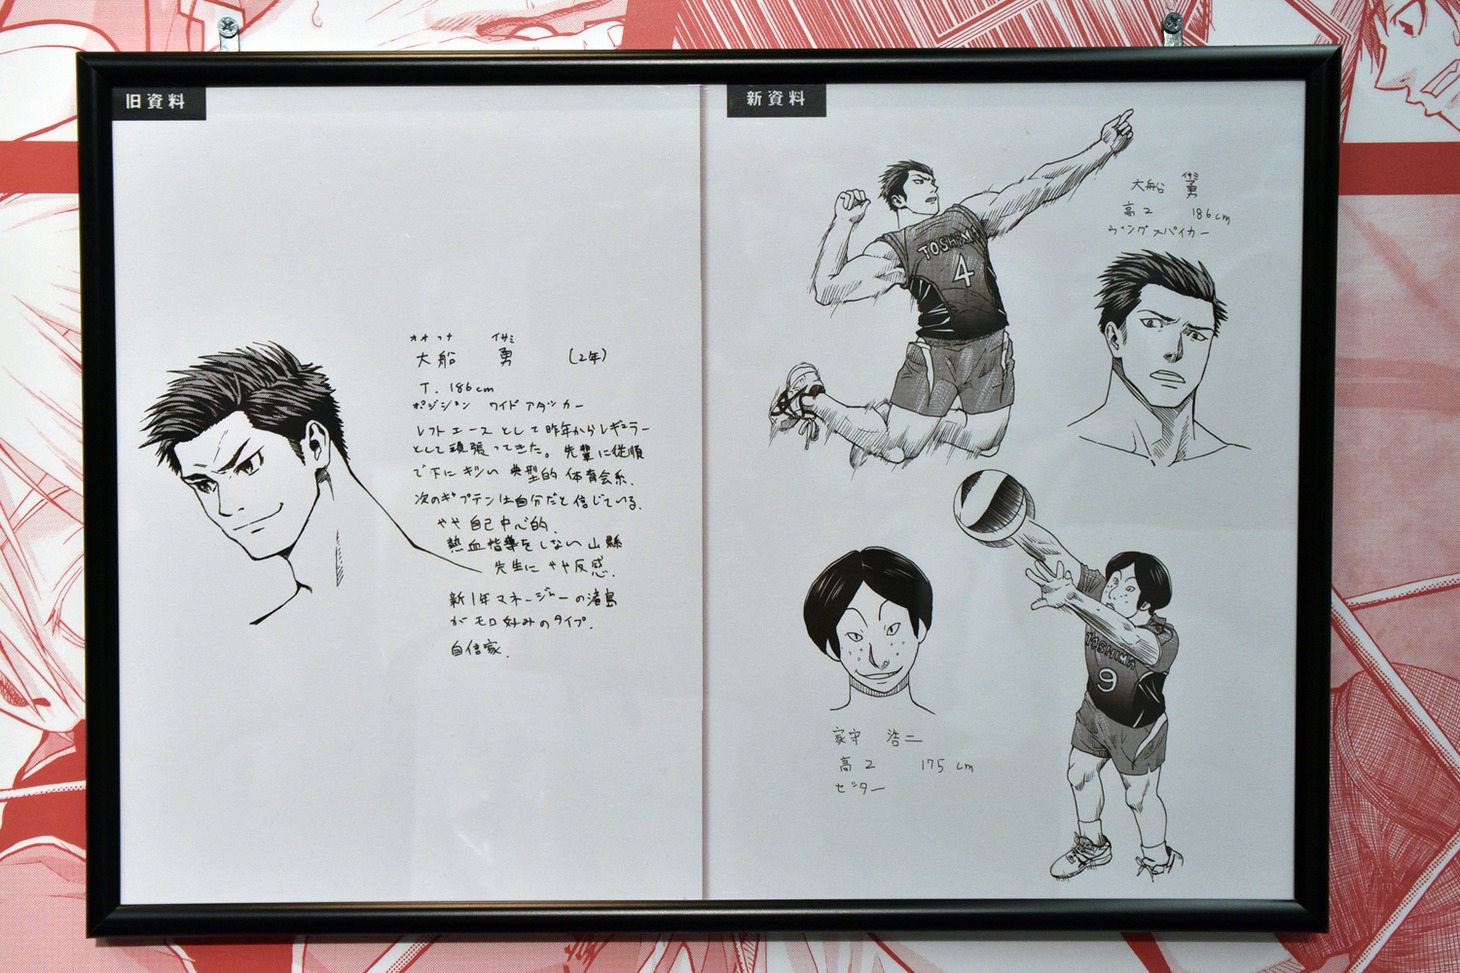 旧資料
オオフナ イサミ
大船 勇 (2年)
T. 186cm
ポジション ワイドアタッカー
レフトエースとして昨年からレギュラー
として頑張ってきた。先輩に従順
で下にキツい典型的体育会系.
次のキャプテンは自分だと信じている.
やや自己中心的.
熱血指導をしない山縣
先生にやや反感.
新1年マネージャーの渚島
がモロ好みのタイプ.
自信家.
新資料
TOSHIMA
4
イサミ
大船 勇
高2 186cm
ウイングスパイカー
TOSHIMA
9
家守 浩二
高2 175cm
セッター